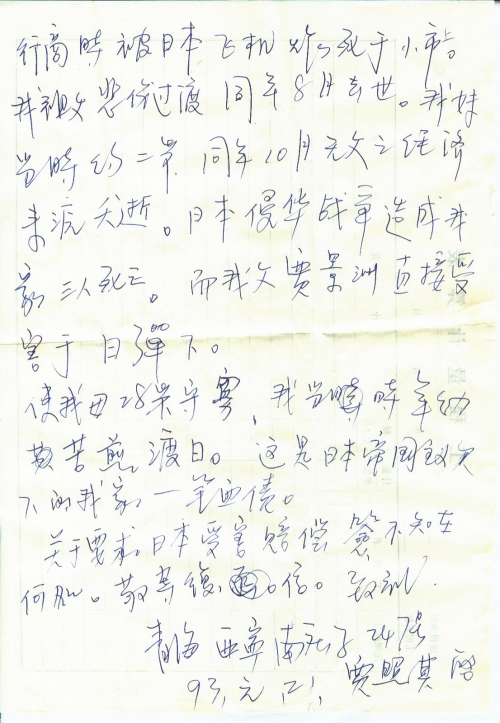 行商時被日本飞机炸死于小市。
我祖父悲伤过渡 同年8月去世。我妹
当時约二岁 同年10月无父之经济
来源夭逝。日本侵华战争造成我
家三人死亡。而我父贾景洲直接受
害于日彈下。
使我母28岁守寡、我当時年幼
艱苦煎渡日。这是日本帝国主义欠
下的我家一笔血债。
关于要求日本受害赔偿 不知在
何处。敬其復信。致礼
青海西宁南 24号
93,元, 贾照其 啓